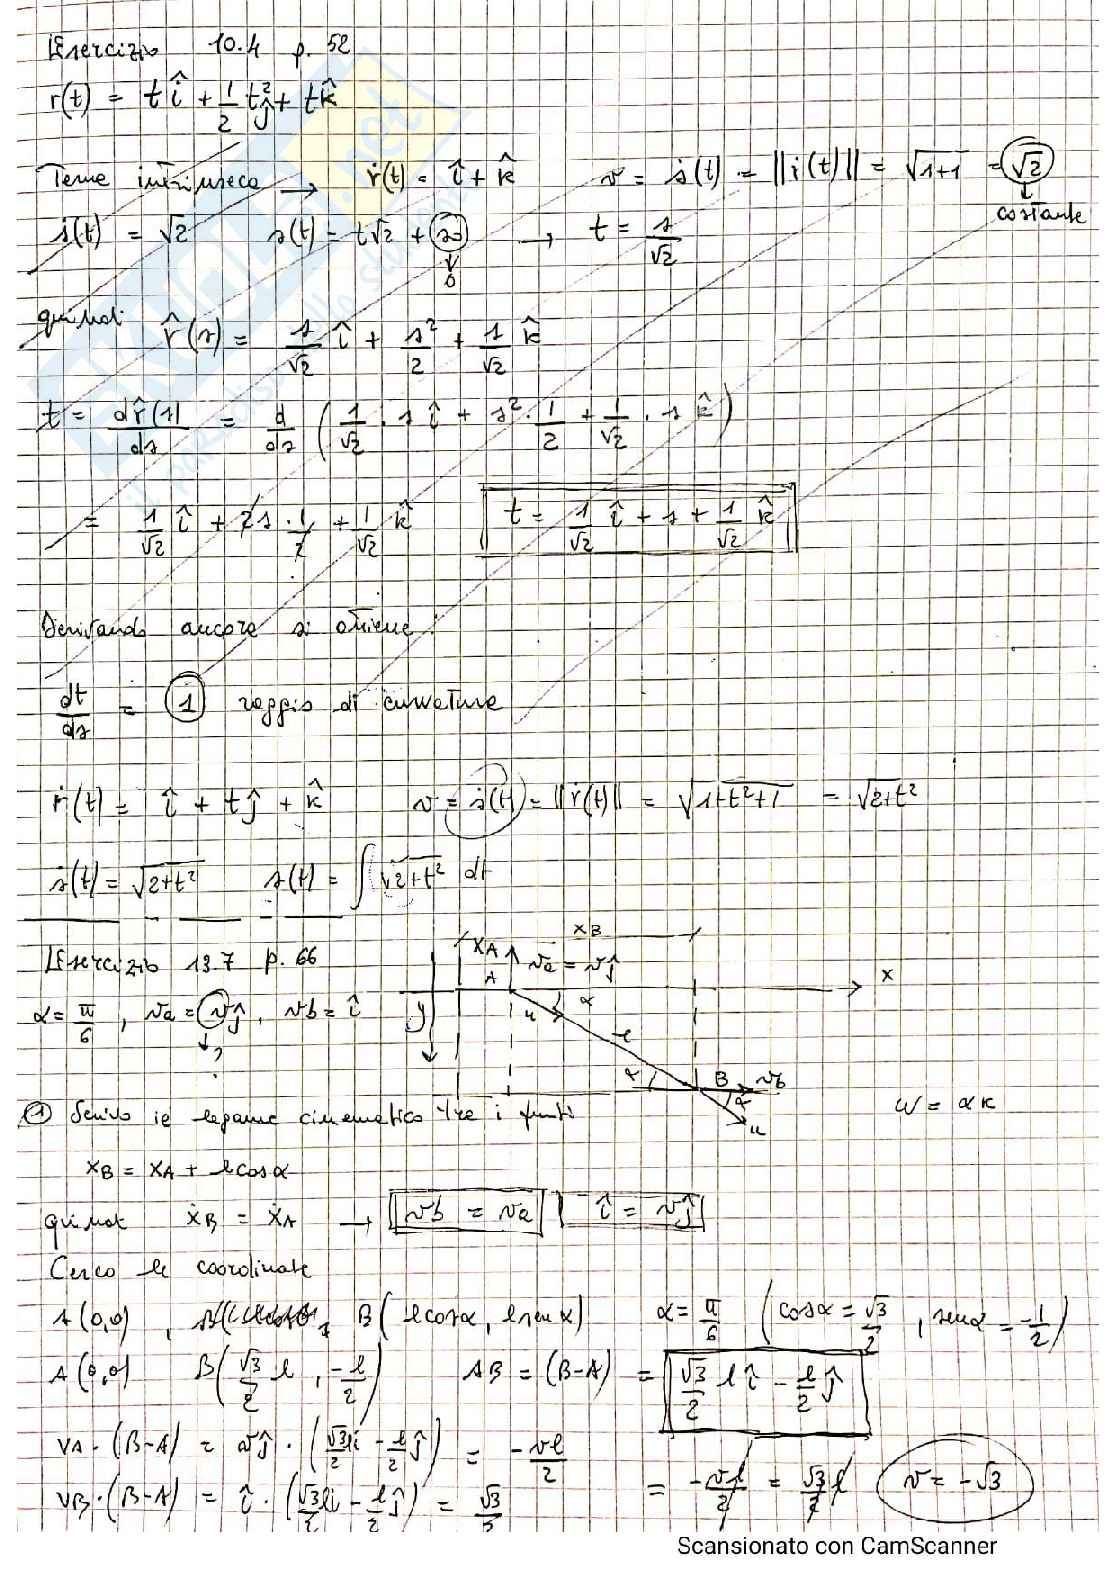 Esercizio 10.4 p. 52
r(t) = t î + 1/2 t² ĵ + t k̂
Terna intrinseca → ṙ(t) = î + k̂ v = ṡ(t) = ||ṙ(t)|| = √1+1 = √2
costante
ṡ(t) = √2 s(t) = t√2 + s0 → t = s/√2
0
quindi r̂(s) = s/√2 î + s²/2 + 1/√2 k̂
t = dr̂(s)/ds = d/ds (1/√2 · s î + s² · 1/2 + 1/√2 · s k̂)
= 1/√2 î + 2s · 1/2 + 1/√2 k̂ t = 1/√2 î + s + 1/√2 k̂
Derivando ancora si ottiene:
dt/ds = 1 raggio di curvatura
ṙ(t) = î + tĵ + k̂ v = ṡ(t) = ||ṙ(t)|| = √1+t²+1 = √2+t²
ṡ(t) = √2+t² s(t) = ∫ √2+t² dt
Esercizio 13.7 p. 66
α = π/6, va = vĵ, vb = î
?
xB
xA
A
va = vĵ
x
y
u
α
l
α
B
vb
α
u
W = α k
① Scrivo il legame cinematico tra i punti
xB = xA + l cos α
quindi ẋB = ẋA → vb = va î = vĵ
Cerco le coordinate
A (0,0) , B (l cos α, l sen α) α = π/6 (cos α = √3/2 , sen α = -1/2)
A (0,0) B (√3/2 l , -l/2) AB = (B-A) = √3/2 l î - l/2 ĵ
VA · (B-A) = vĵ · (√3/2 l i - l/2 ĵ) = -vl/2
VB · (B-A) = î · (√3/2 l i - l/2 ĵ) = √3/2 = -vl/2 = √3/2 l v = -√3
Scansionato con CamScanner